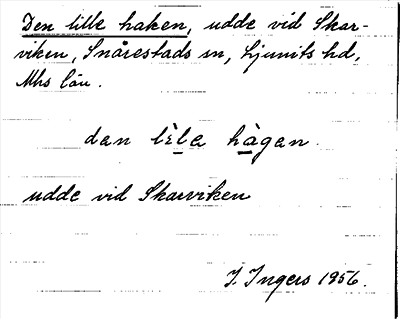 Den lille haken, udde vid Skar-
viken, Snårestads sn, Ljunits hd,
Mhs län.
dan lὲla hàgan.
udde vid Skarviken
I. Ingers 1956.